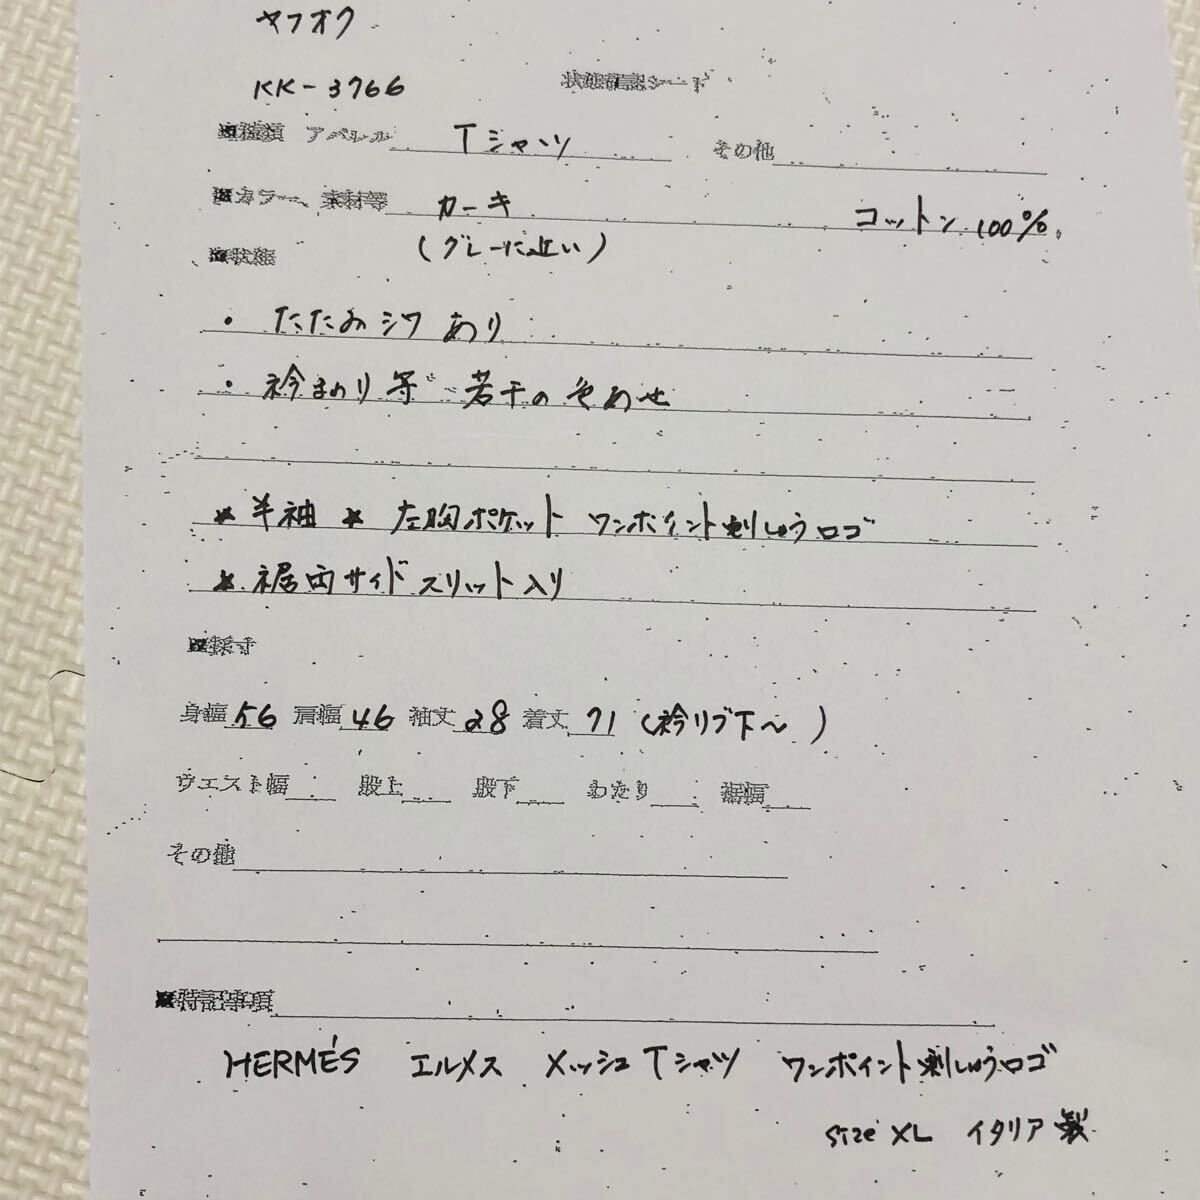 ヤフオク
KK-3766 状態確認シート
■種類 アパレル Tシャツ その他
■カラー、素材等 カーキ コットン 100%。
(グレーに近い)
■状態
・たたみシワあり
・衿まわり等 若干の色あせ
★半袖 ★左胸ポケット ワンポイント刺しゅうロゴ
★裾両サイドスリット入り
■採寸
身幅 56 肩幅 46 袖丈 28 着丈 71 (衿リブ下〜)
ウエスト幅 股上 股下 わたり 裾幅
その他
■特記事項
HERMÉS エルメス メッシュTシャツ ワンポイント刺しゅうロゴ
size XL イタリア製